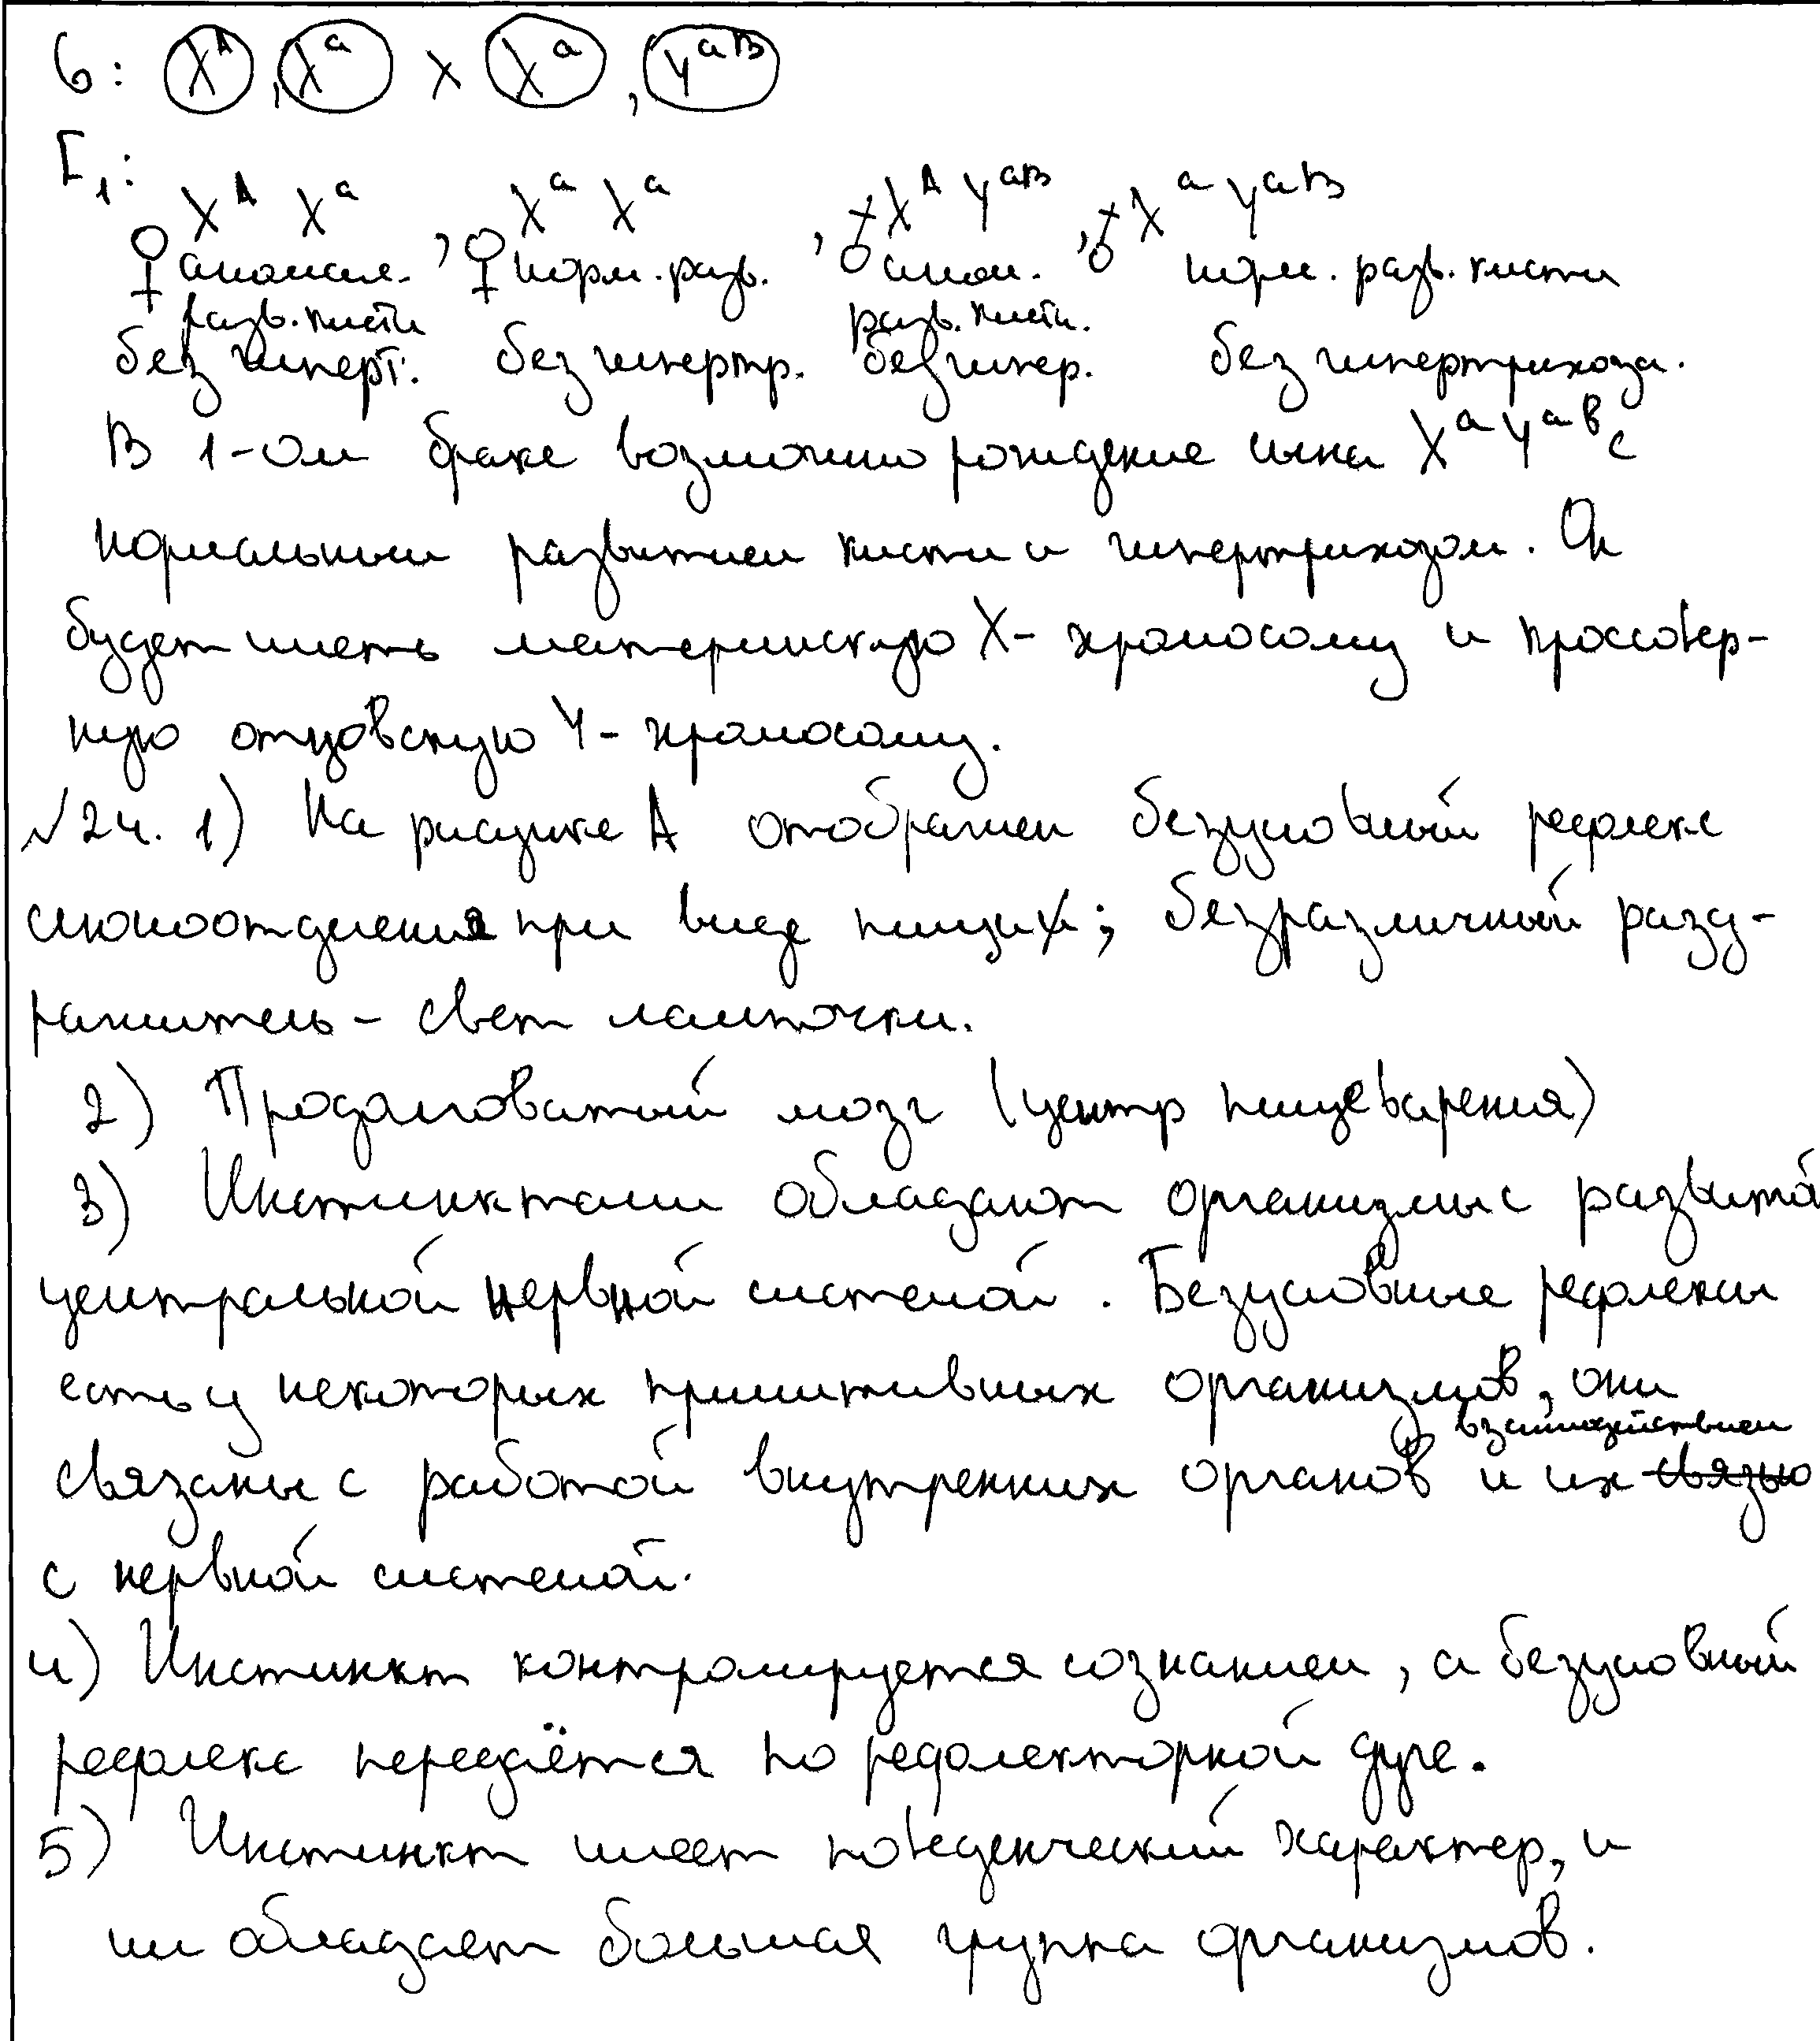 G: X^A, X^a × X^a, Y^aB
F₁:
♀ X^A X^a, ♀ X^a X^a, ♂ X^A Y^aB, ♂ X^a Y^aB
аномал. норм. разв. аном. норм. разв. кисти
разв. кисти разв. кисти.
без гиперт. без гипертр. без гипер. без гипертрихоза.
В 1-ом браке возможно рождение сына X^a Y^ab с
нормальным развитием кисти и гипертрихозом. Он
будет иметь материнскую X- хромосому и кроссовер-
ную отцовскую Y- хромосому.
№24. 1) На рисунке А отображен безусловный рефлекс
слюноотделения при виде пищи; безразличный разд-
ражитель - свет лампочки.
2) Продолговатый мозг (центр пищеварения)
3) Инстинктами обладают организмы с развитой
центральной нервной системой. Безусловные рефлексы
есть у некоторых примитивных организмов, они
взаимодействием
связаны с работой внутренних органов и их связью
с нервной системой.
4) Инстинкт контролируется сознанием, а безусловный
рефлекс передаётся по рефлекторной дуге.
5) Инстинкт имеет поведенческий характер, и
им обладает большая группа организмов.